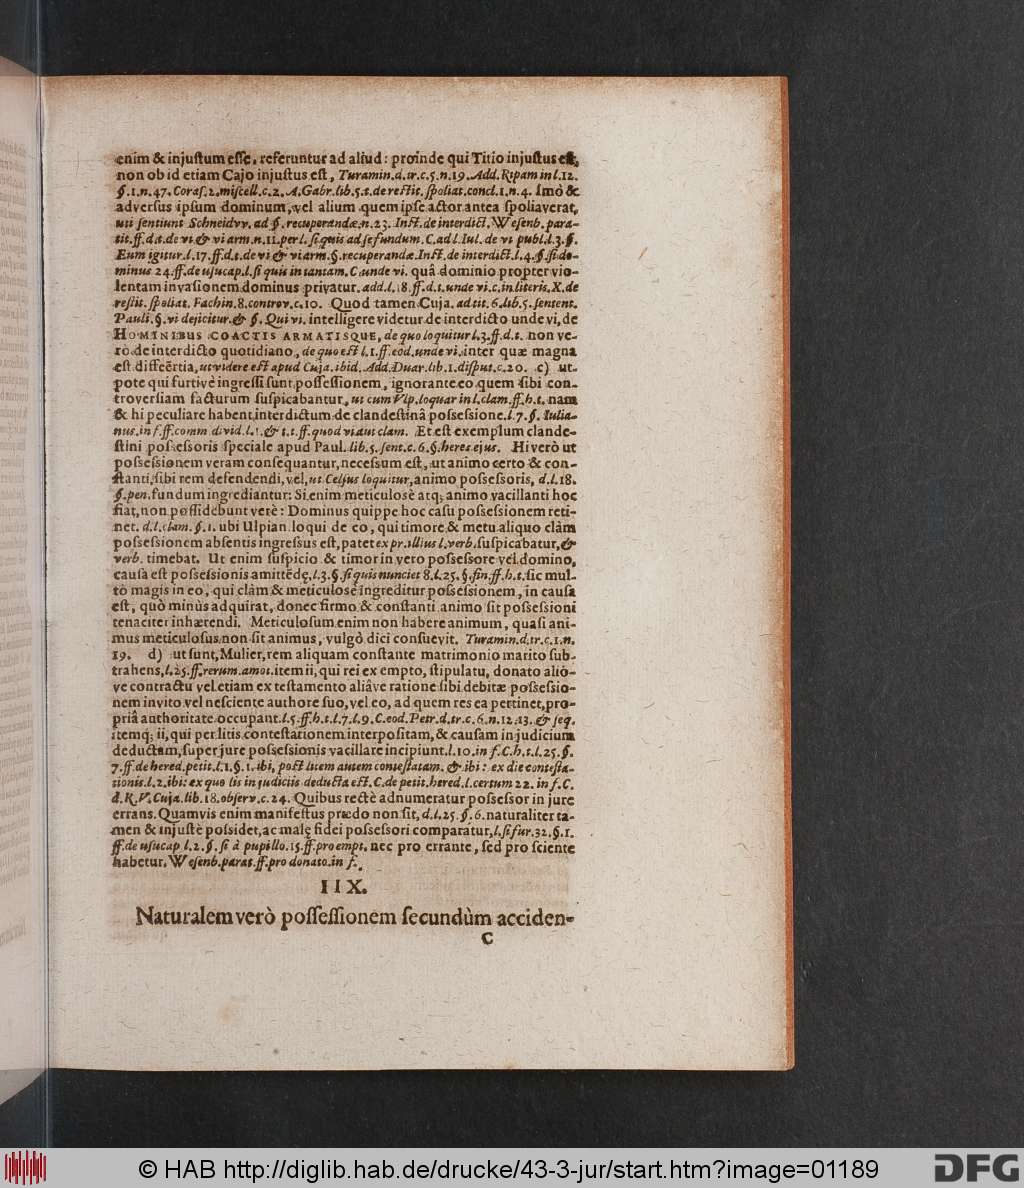 enim & injuſtum eſſe, referuntur ad aliud: proinde qui Titio injuſtus eſt,
non ob id etiam Cajo injuſtus eſt, Turamin.d.tr.c.5.n.19. Add. Ripam in l.12.
§.1.n.47. Coraſ.2.miſcell.c.2. A.Gabr.lib.5.t.de reſtit. ſpoliat.concl.1.n.4. Imò &
adverſus ipſum dominum, vel alium quem ipſe actor antea ſpoliaverat,
uti ſentiunt Schneidvv. ad §. recuperandæ.n.23. Inſt.de interdict. Weſenb. para-
tit.ff.d.t.de vi & vi arm.n.11.per l. ſi quis ad ſe fundum. C.ad l.Iul.de vi publ.l.3.§.
Eum igitur.l.17.ff.d.t.de vi & vi arm.§.recuperandæ.Inſt.de interdict.l.4.§.ſi do-
minus 24.ff.de uſucap.l.ſi quis in tantam.C.unde vi. quâ dominio propter vio-
lentam invaſionem dominus privatur. add.l.18.ff.d.t.unde vi.c.in literis.X.de
reſtit.ſpoliat.Fachin.8.controv.c.10. Quod tamen Cuja. ad tit.6.lib.5.ſentent.
Pauli.§.vi dejicitur.& §. Qui vi. intelligere videtur de interdicto unde vi, de
HOMINIBUS COACTIS ARMATISQUE, de quo loquitur l.3.ff.d.t. non ve-
rò de interdicto quotidiano, de quo eſt l.1.ff.eod.unde vi. inter quæ magna
eſt differẽtia, ut videre eſt apud Cuja.ibid. Add.Duar.lib.1.diſput.c.20. c) ut-
pote qui furtivè ingreſſi ſunt poſſeſſionem, ignorante eo quem ſibi con-
troverſiam facturum ſuſpicabantur, ut cum Vlp.loquar in l.clam.ff.h.t. nam
& hi peculiare habent interdictum de clandeſtinâ poſseſsione.l.7.§. Iulia-
nus.in f.ff.comm divid.l.1.& t.t.ff.quod vi aut clam. Et eſt exemplum clande-
ſtini poſseſsoris ſpeciale apud Paul.lib.5.ſent.c.6.§.heres ejus. Hi verò ut
poſseſsionem veram conſequantur, neceſsum eſt, ut animo certo & con-
ſtanti, ſibi rem defendendi, vel, ut Celſus loquitur, animo poſseſsoris, d.l.18.
§.pen.fundum ingrediantur: Si enim meticulosè atq; animo vacillanti hoc
fiat, non poſſidebunt verè: Dominus quippe hoc caſu poſseſsionem reti-
net. d.l.clam.§.1. ubi Ulpian.loqui de eo, qui timore & metu aliquo clàm
poſseſsionem abſentis ingreſsus eſt, patet ex pr.illius l.verb.ſuſpicabatur, &
verb. timebat. Ut enim ſuſpicio & timor in vero poſseſsore vel domino,
cauſa eſt poſseſsionis amittẽdę, l.3.§.ſi quis nunciet 8.l.25.§.fin.ff.h.t. ſic mul-
tò magis in eo, qui clàm & meticulosè ingreditur poſseſsionem, in cauſa
eſt, quò minùs adquirat, donec firmo & conſtanti animo ſit poſseſsioni
tenaciter inhærendi. Meticuloſum enim non habere animum, quaſi ani-
mus meticuloſus non ſit animus, vulgò dici conſuevit. Turamin.d.tr.c.1.n.
19. d) ut ſunt, Mulier, rem aliquam conſtante matrimonio marito ſub-
trahens, l.25.ff.rerum.amot. item ii, qui rei ex empto, ſtipulatu, donato aliò-
ve contractu vel etiam ex teſtamento aliâve ratione ſibi debitæ poſseſsio-
nem invito vel neſciente authore ſuo, vel eo, ad quem res ea pertinet, pro-
priâ authoritate occupant.l.5.ff.h.t.l.7.l.9.C.eod.Petr.d.tr.c.6.n.12.13.& ſeq.
itemq; ii, qui per litis conteſtationem interpoſitam, & cauſam in judicium
deductam, ſuper jure poſseſsionis vacillare incipiunt.l.10.in f.C.h.t.l.25.§.
7.ff.de hered.petit.l.1.§.1.ibi, poſt litem autem conteſtatam. & ibi: ex die conteſta-
tionis.l.2.ibi: ex quo lis in judiciis deducta eſt.C.de petit.hered.l.certum 22.in f.C.
d.R.V.Cuja.lib.18.obſerv.c.24. Quibus rectè adnumeratur poſseſsor in jure
errans. Quamvis enim manifeſtus prædo non ſit, d.l.25.§.6. naturaliter ta-
men & injuſtè poſsidet, ac malę fidei poſseſsori comparatur, l.ſi fur.32.§.1.
ff.de uſucap l.2.§.ſi à pupillo.15.ff.pro empt. nec pro errante, ſed pro ſciente
habetur. Weſenb.parat.ff.pro donato.in f.
IIX.
Naturalem verò poſſeſſionem ſecundùm acciden-
C
© HAB http://diglib.hab.de/drucke/43-3-jur/start.htm?image=01189
DFG